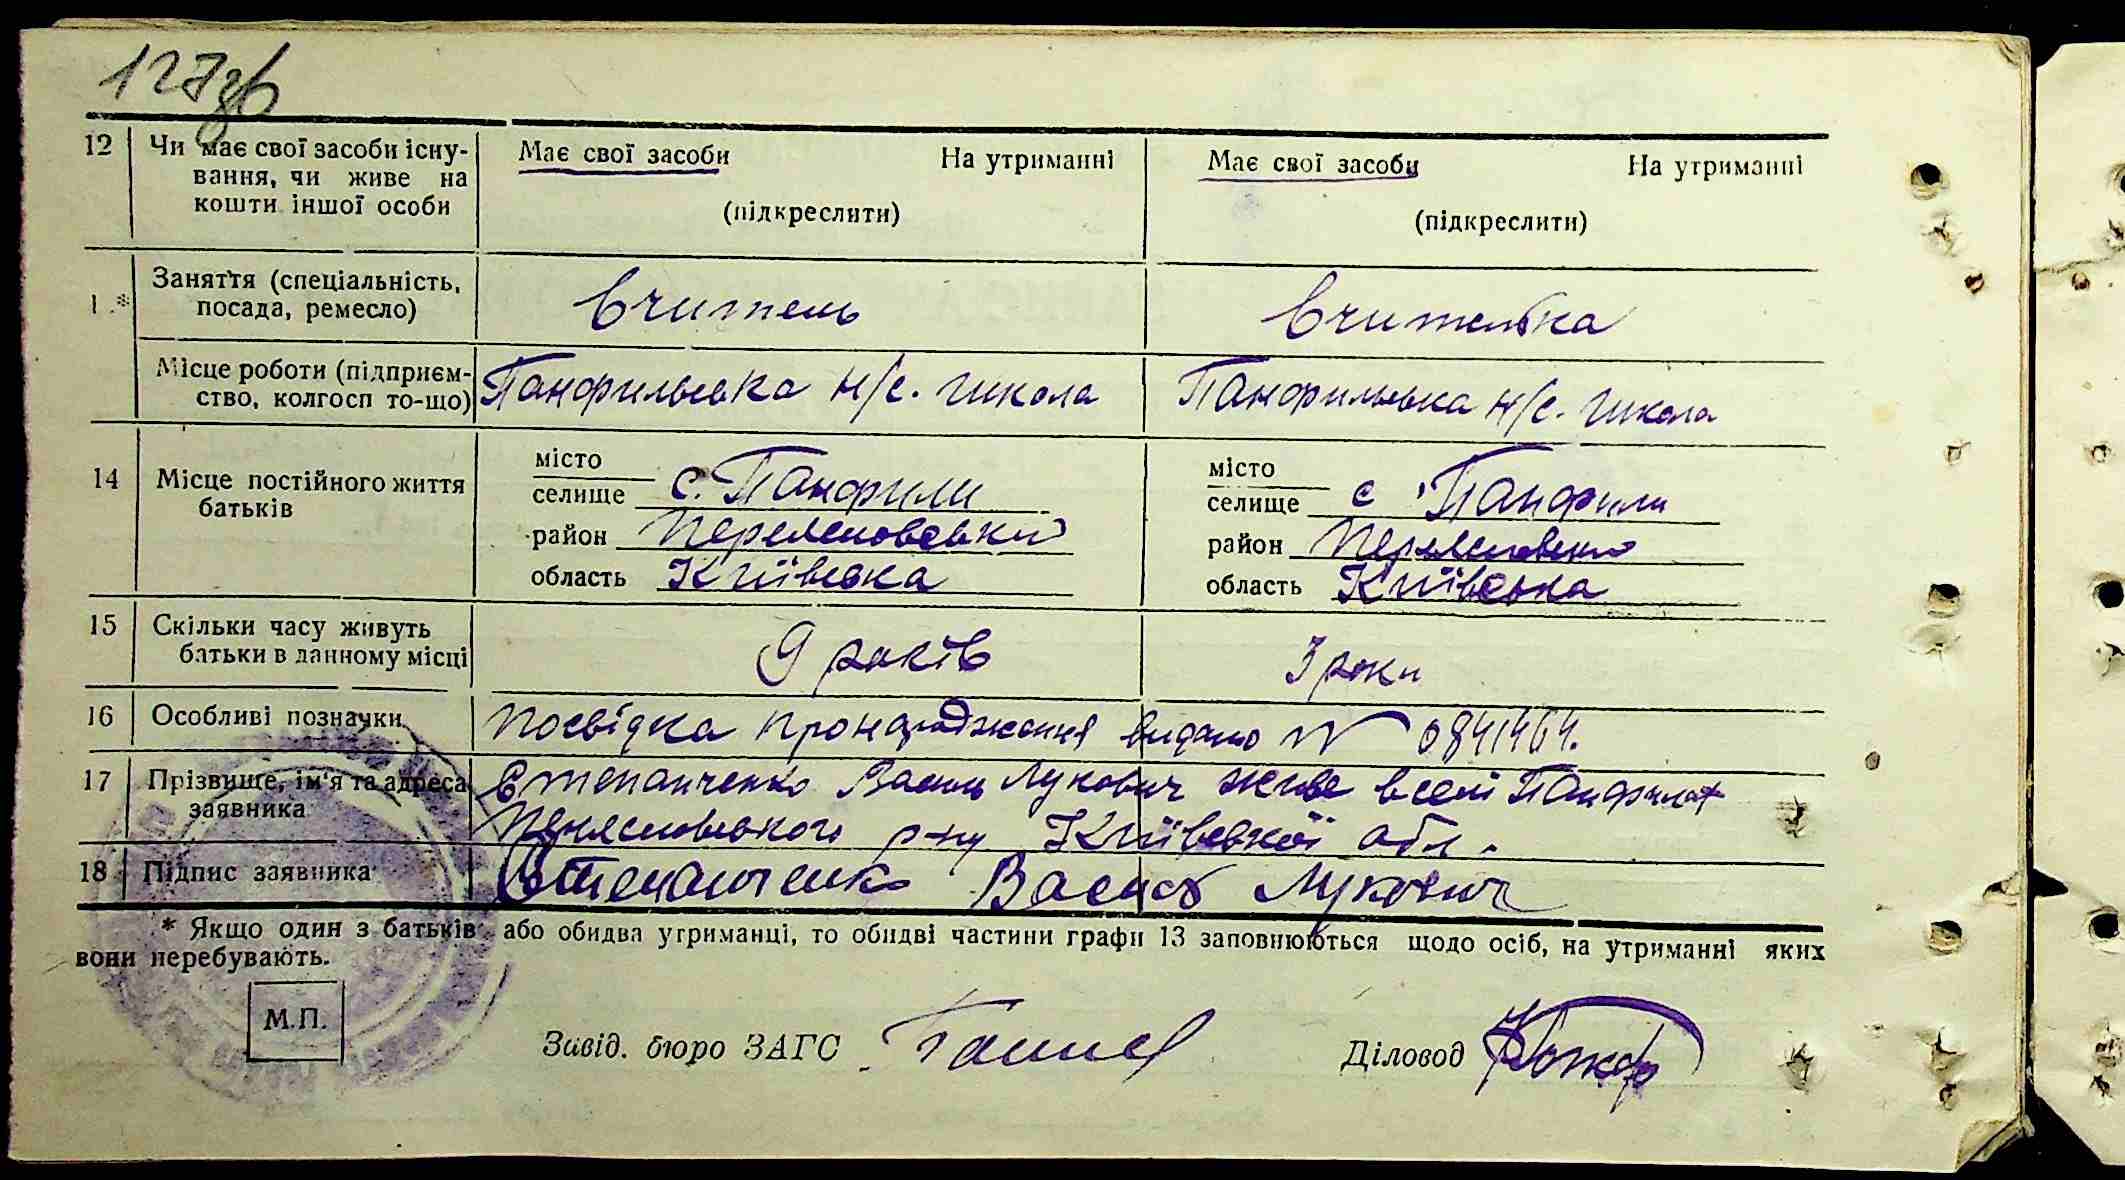 127зв
12 Чи має свої засоби існу- Має свої засоби На утриманні Має свої засоби На утриманні
вання, чи живе на
кошти іншої особи (підкреслити) (підкреслити)
1 .* Заняття (спеціальність, Вчитель Вчителька
посада, ремесло)
Місце роботи (підприєм- Панфильська н/с. школа Панфильська н/с. школа
ство, колгосп то-що)
14 Місце постійного життя місто місто
батьків селище с. Панфили селище с. Панфили
район Переяславський район
область Київська область Київська
15 Скільки часу живуть 9 років 3 роки
батьки в данному місці
16 Особливі позначки Посвідка про народження видано N 0841464.
17 Прізвище, ім'я та адреса Степанченко Василь Лукович живе в селі Панфилах
заявника р-ну Київської обл.
18 Підпис заявника Степанченко Василь Лукович
* Якщо один з батьків або обидва утриманці, то обидві частини графи 13 заповнюються щодо осіб, на утриманні яких
вони перебувають.
М.П.
Завід. бюро ЗАГС Діловод